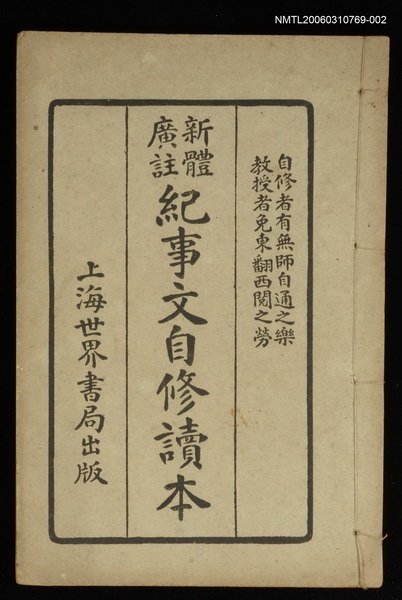 NMTL20060310769-002
自修者有無師自通之樂
教授者免東翻西閱之勞
新體
廣註
紀事文自修讀本
上海世界書局出版